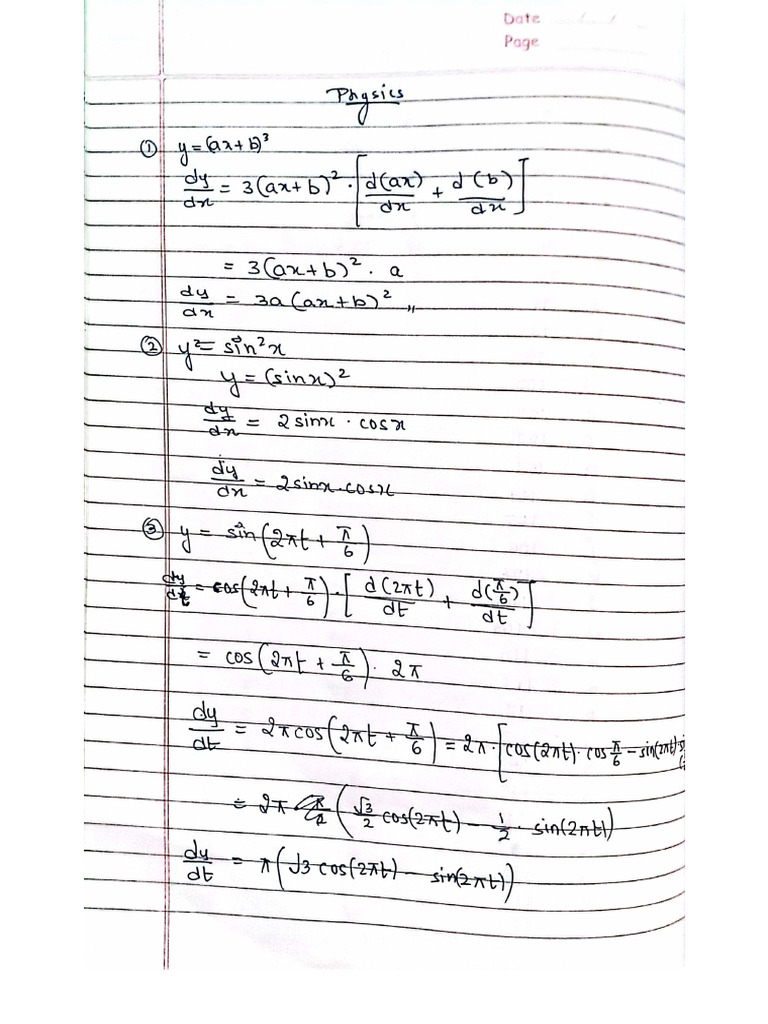 Date / /
Page
Physics
① y = (ax+b)³
dy/dx = 3(ax+b)² · [d(ax)/dx + d(b)/dx]
= 3(ax+b)² · a
dy/dx = 3a(ax+b)² ,,
② y = sin²x
y = (sinx)²
dy/dx = 2sinx · cosx
dy/dx = 2sinx·cosx
③ y = sin(2πt + π/6)
dy/dt = cos(2πt + π/6) · [d(2πt)/dt + d(π/6)/dt]
= cos(2πt + π/6) · 2π
dy/dt = 2πcos(2πt + π/6) = 2π·[cos(2πt)·cos π/6 − sin(2πt)·
= 2π (√3/2 cos(2πt) − 1/2 · sin(2πt))
dy/dt = π(√3 cos(2πt) − sin(2πt))